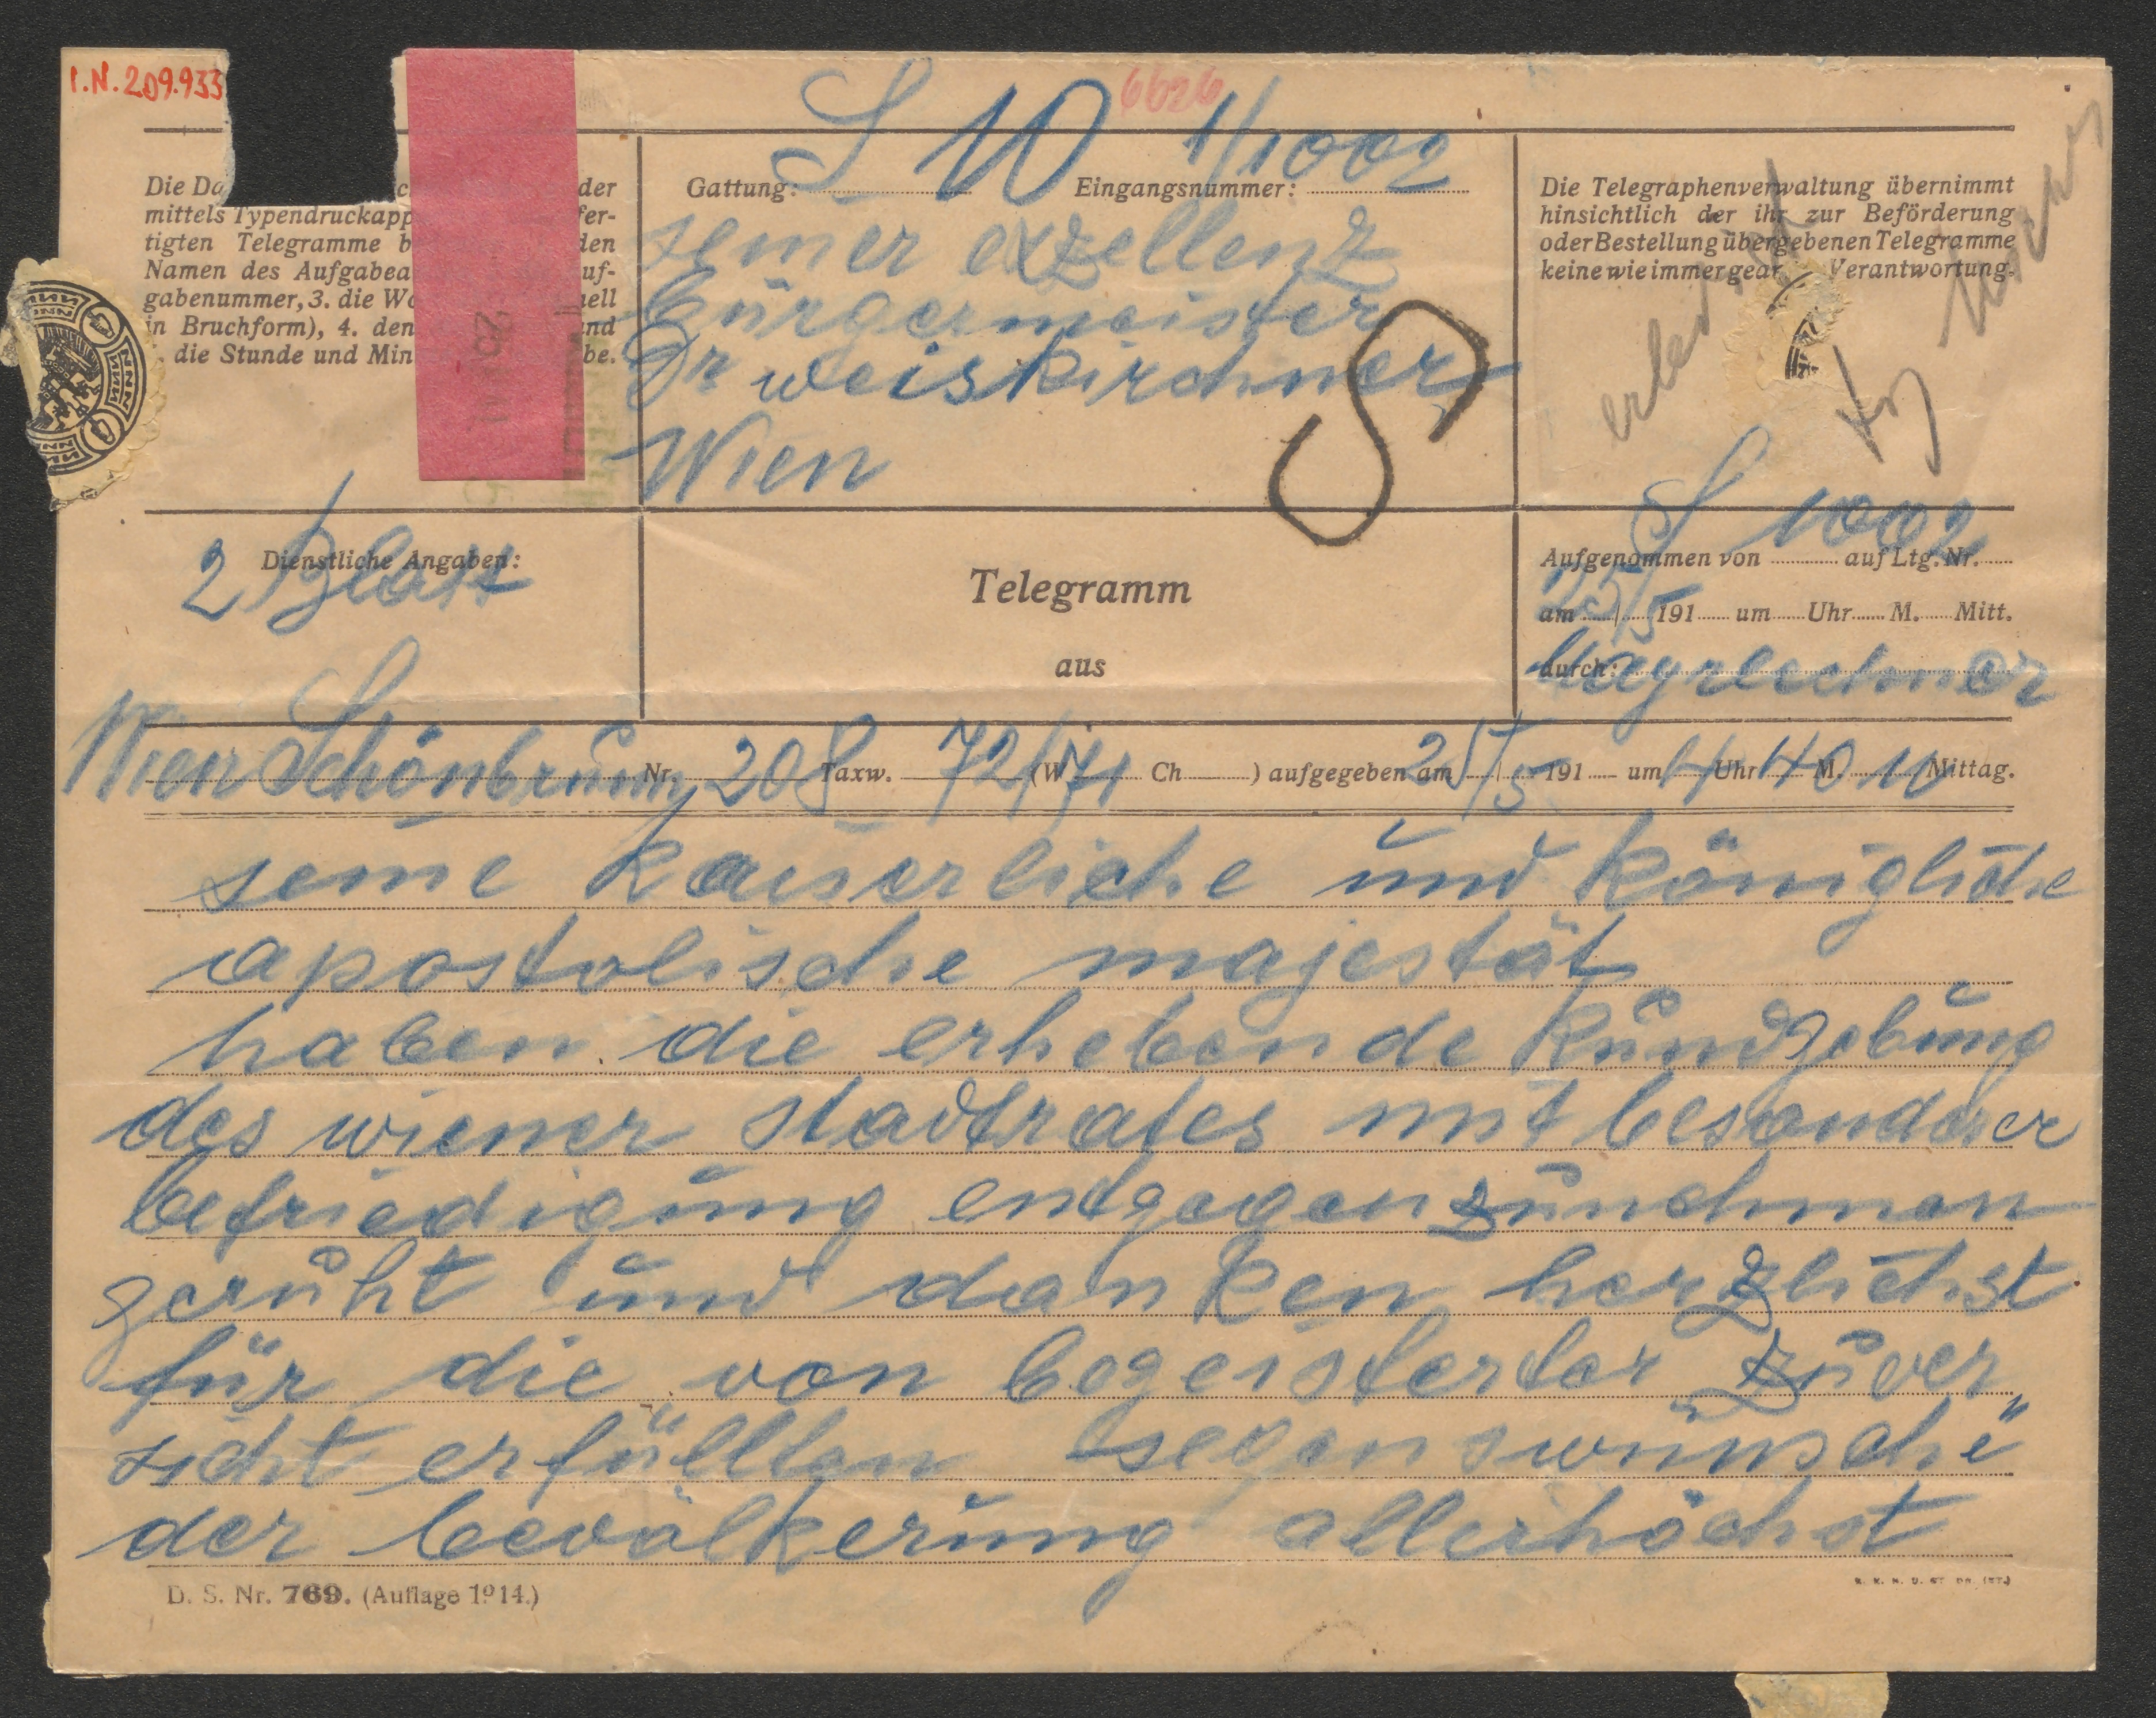 I.N. 209.933
6626
S W 1/1002
Gattung: Eingangsnummer:
Die Da der
mittels Typendruckapp fer-
tigten Telegramme b den
Namen des Aufgabea uf-
gabenummer, 3. die Wo ell
in Bruchform), 4. den und
die Stunde und Min be.
seiner exzellenz
bürgermeister
Dr weiskirchner
Wien
S
Die Telegraphenverwaltung übernimmt
hinsichtlich der ihr zur Beförderung
oder Bestellung übergebenen Telegramme
keine wie immer gear Verantwortung.
Dienstliche Angaben:
2 Blatt
Telegramm
aus
S 1002
Aufgenommen von auf Ltg. Nr.
am 25/5 191 um Uhr M. Mitt.
durch:
Wien Schönbrunn Nr. 208 Taxw. 72 (W 71 Ch ) aufgegeben am 25/5 191 um 4 Uhr 40 M. N Mittag.
seine kaiserliche und königliche
apostolische majestät
haben die erhebende kundgebung
des wiener stadtrates mit besonderer
befriedigung entgegenzunehmen
geruht und danken herzlichst
für die von begeisterter zuver
sicht erfüllten segenswünsche
der bevölkerung allerhöchst
D. S. Nr. 769. (Auflage 1914.)